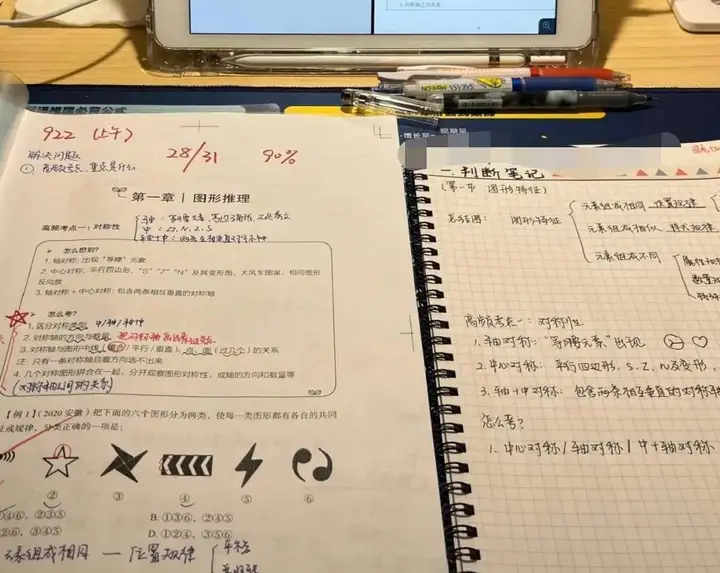 922 (上午)
28/31 90%
解决问题
① 高频考点、重点是什么
第一章 | 图形推理
高频考点一：对称性
怎么想到？
1. 轴对称：出现“等腰”元素
2. 中心对称：平行四边形、“S”“Z”“N”及其变形图、大风车图案、相同图形
反向放
3. 轴对称+中心对称：包含两条相互垂直的对称轴
怎么考？
1. 区分对称类型
2. 对称轴的方向与数量
3. 对称轴与图形中线（重合/平行/垂直）、点、面（过几个）的关系
注：只有一条对称轴且看方向选不出来
4. 几个对称图形拼合在一起，分开观察图形对称性，成轴的方向和数量等
(对称轴之间的关系)
【例 1】（2020 安徽）把下面的六个图形分为两类，使每一类图形都有各自的共同
征或规律，分类正确的一项是：
② ③ ④ ⑤ ⑥
①④⑥，②③⑤ B. ①③⑥，②④⑤
②⑥，③④⑤ D. ①②④，③⑤⑥
元素组成相同 — 位置规律
平移
一. 判断笔记
(第一节 图形特征)
图形特征
元素组成相同 位置规律
元素组成相似 样式规律
元素组成不同
高频考点一：对称性
1. 轴对称：“等腰元素”出现
2. 中心对称：平行四边形，S、Z、N及变形，
3. 轴+中对称：包含两条相互垂直的对称轴
怎么考？
1. 中心对称/轴对称/中+轴对称